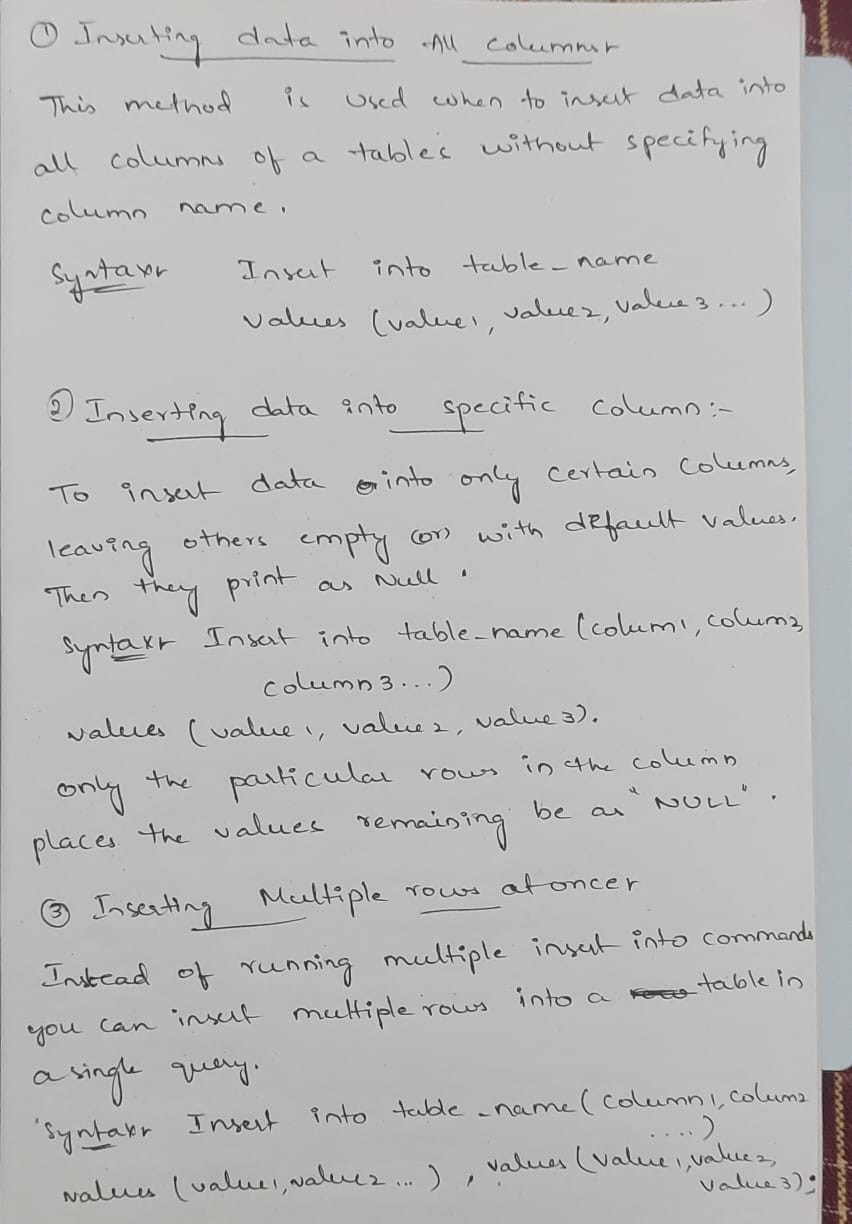 ① Inserting data into All columns:-
This method is used when to insert data into
all columns of a tables without specifying
column name.
Syntax:- Insert into table_name
values (value1, value2, value3...)
② Inserting data into specific column:-
To insert data into only certain columns,
leaving others empty (or) with default values.
Then they print as Null.
Syntax:- Insert into table_name (colum1, colum2,
column3...)
values (value1, value2, value3).
only the particular rows in the column
places the values remaining be as "NULL".
③ Inserting Multiple rows at once:-
Instead of running multiple insert into commands
you can insert multiple rows into a rows table in
a single query.
Syntax:- Insert into table_name (column1, colum2
....)
values (value1, value2 ...), values (value1, value2,
value3);